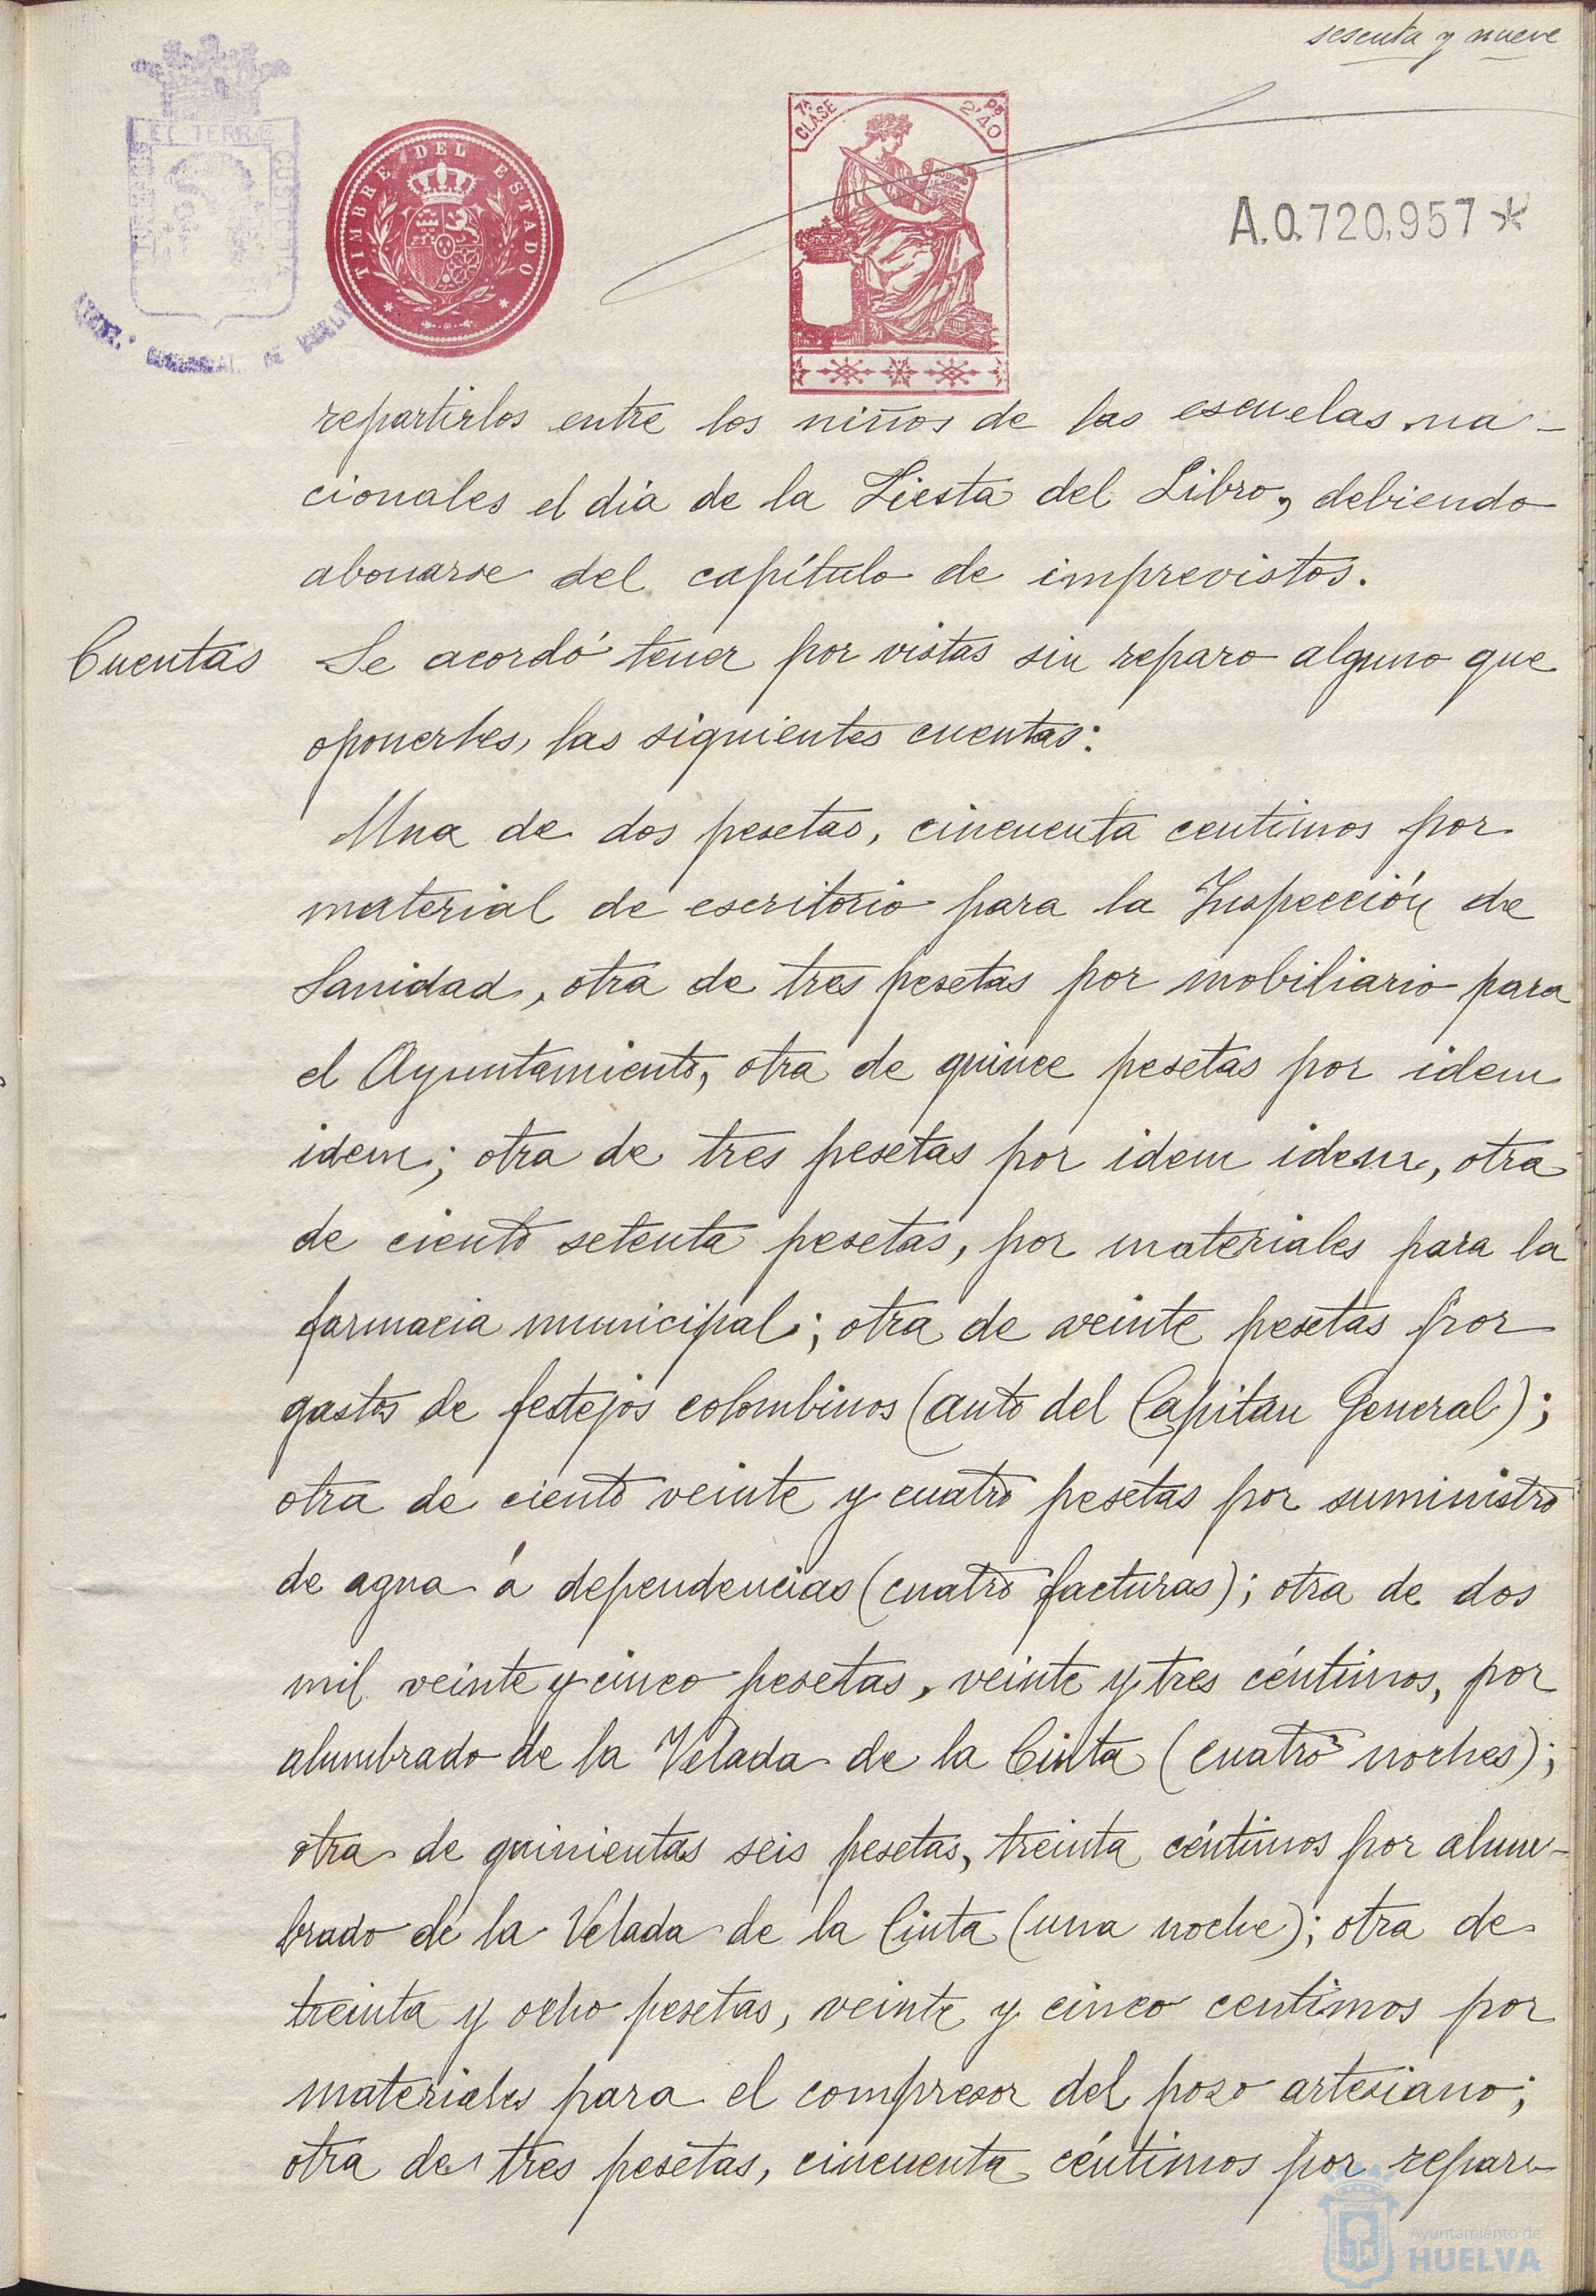 sesenta y nueve
EL TERRÆ
CUSTODIA
TIMBRE DEL ESTADO
7ª CLASE
2'40 Ps
A.0.720,957*
DE HUELVA
repartirlos entre los niños de las escuelas na-
cionales el día de la Fiesta del Libro, debiendo
abonarse del capítulo de imprevistos.
Cuentas Se acordó tener por vistas sin reparo alguno que
oponerles, las siguientes cuentas:
Una de dos pesetas, cincuenta centimos por
material de escritorio para la Inspección de
Sanidad, otra de tres pesetas por mobiliario para
el Ayuntamiento, otra de quince pesetas por idem
idem; otra de tres pesetas por idem idem, otra
de ciento setenta pesetas, por materiales para la
farmacia municipal; otra de veinte pesetas por
gastos de festejos colombinos (auto del Capitan General);
otra de ciento veinte y cuatro pesetas por suministro
de agua á dependencias (cuatro facturas); otra de dos
mil veinte y cinco pesetas, veinte y tres céntimos, por
alumbrado de la Velada de la Cinta (cuatro noches);
otra de quinientas seis pesetas, treinta céntimos por alum-
brado de la Velada de la Cinta (una noche); otra de
treinta y ocho pesetas, veinte y cinco centimos por
materiales para el compresor del pozo artesiano;
otra de tres pesetas, cincuenta céntimos por repara-
Ayuntamiento de
HUELVA